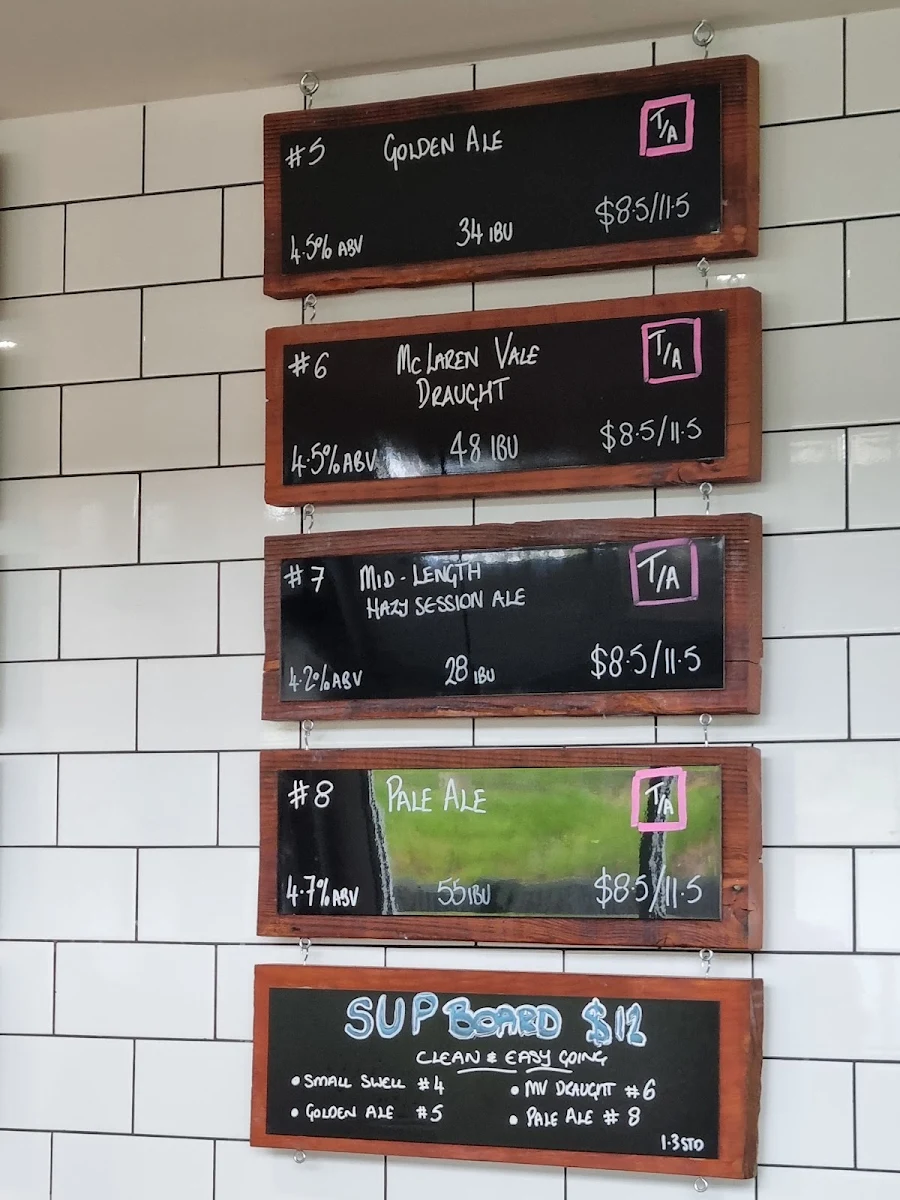 #5 GOLDEN ALE T/A
4.5% ABV 34 IBU $8.5/11.5
#6 MCLAREN VALE T/A
DRAUGHT
4.5% ABV 48 IBU $8.5/11.5
#7 MID-LENGTH T/A
HAZY SESSION ALE
4.2% ABV 28 IBU $8.5/11.5
#8 PALE ALE T/A
4.7% ABV 55 IBU $8.5/11.5
SUP BOARD $12
CLEAN & EASY GOING
• SMALL SWELL #4 • MV DRAUGHT #6
• GOLDEN ALE #5 • PALE ALE #8
1.3 STD